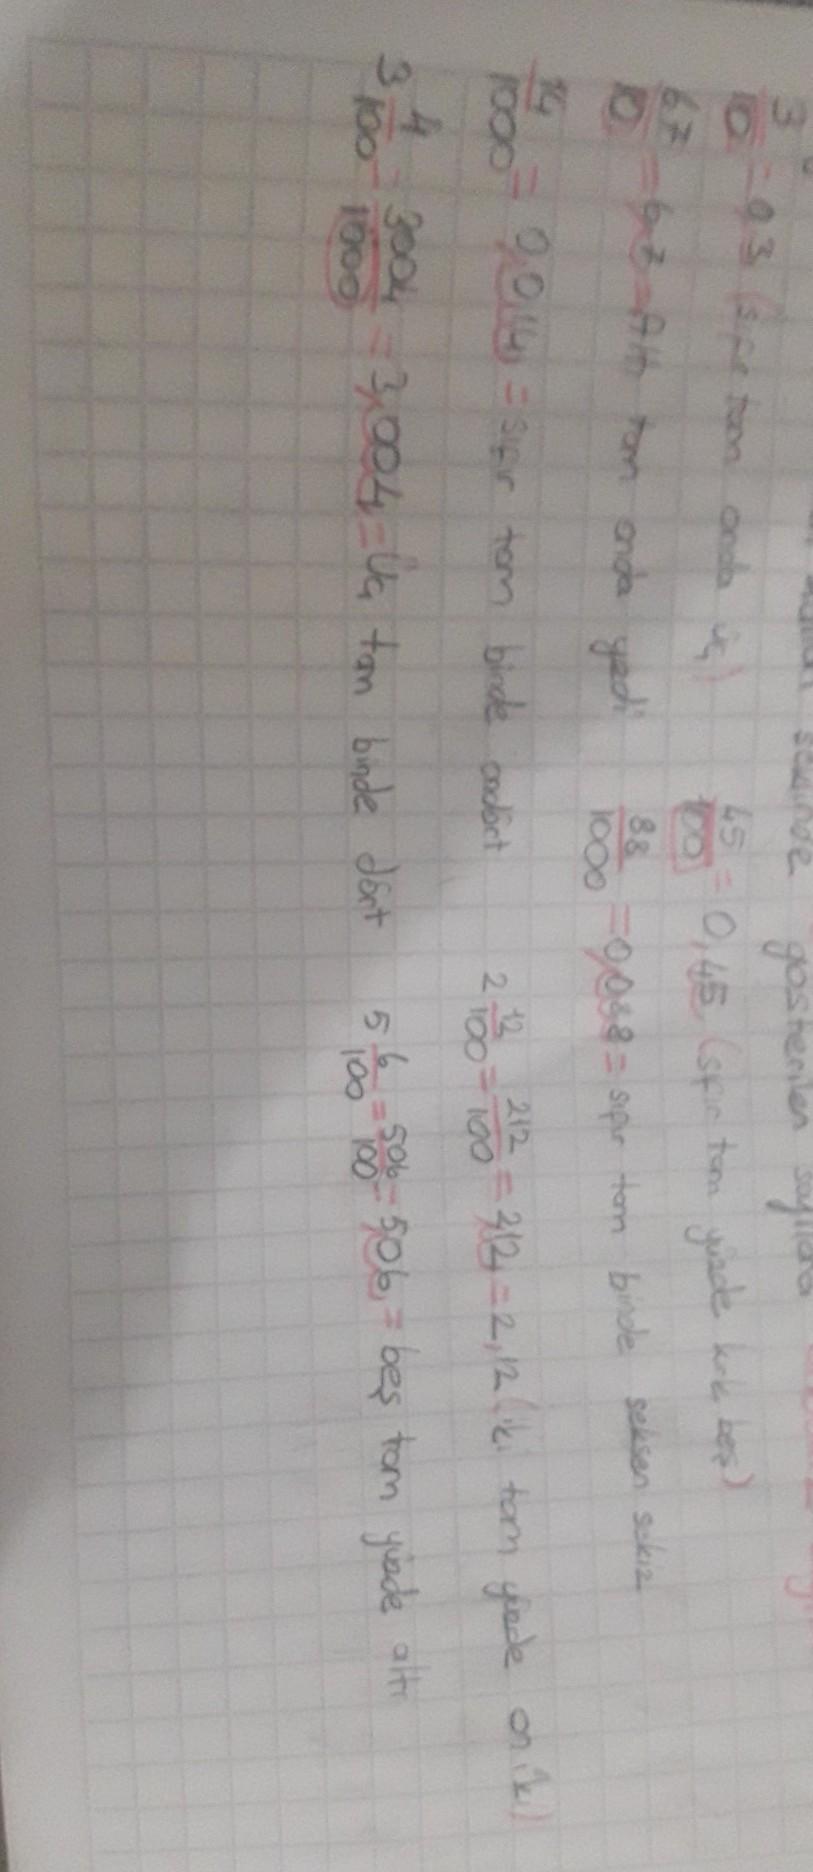 şeklinde gösterilen
3/10 = 0,3 (sıfır tam onda üç) 45/100 = 0,45 (sıfır tam yüzde kırk beş)
67/10 = 6,7 = Altı tam onda yedi 88/1000 = 0,088 = sıfır tam binde seksen sekiz
14/1000 = 0,014 = sıfır tam binde ondört 2 12/100 = 212/100 = 212 = 2,12 (iki tam yüzde on iki)
3 4/100 = 3004/1000 = 3,004 = Üç tam binde dört 5 6/100 = 506/100 = 5,06 = beş tam yüzde altı